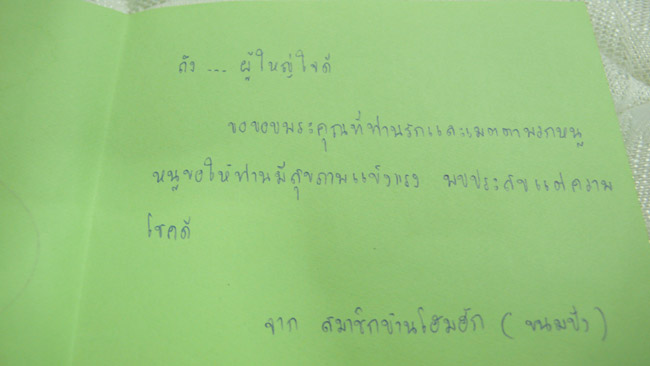 ถึง ... ผู้ใหญ่ใจดี
ขอขอบพระคุณที่ท่านรักและเมตตาพวกหนู
หนูขอให้ท่านมีสุขภาพแข็งแรง พบประสบแต่ความ
โชคดี
จาก สมาชิกบ้านโฮมฮัก ( ขนมปัง )